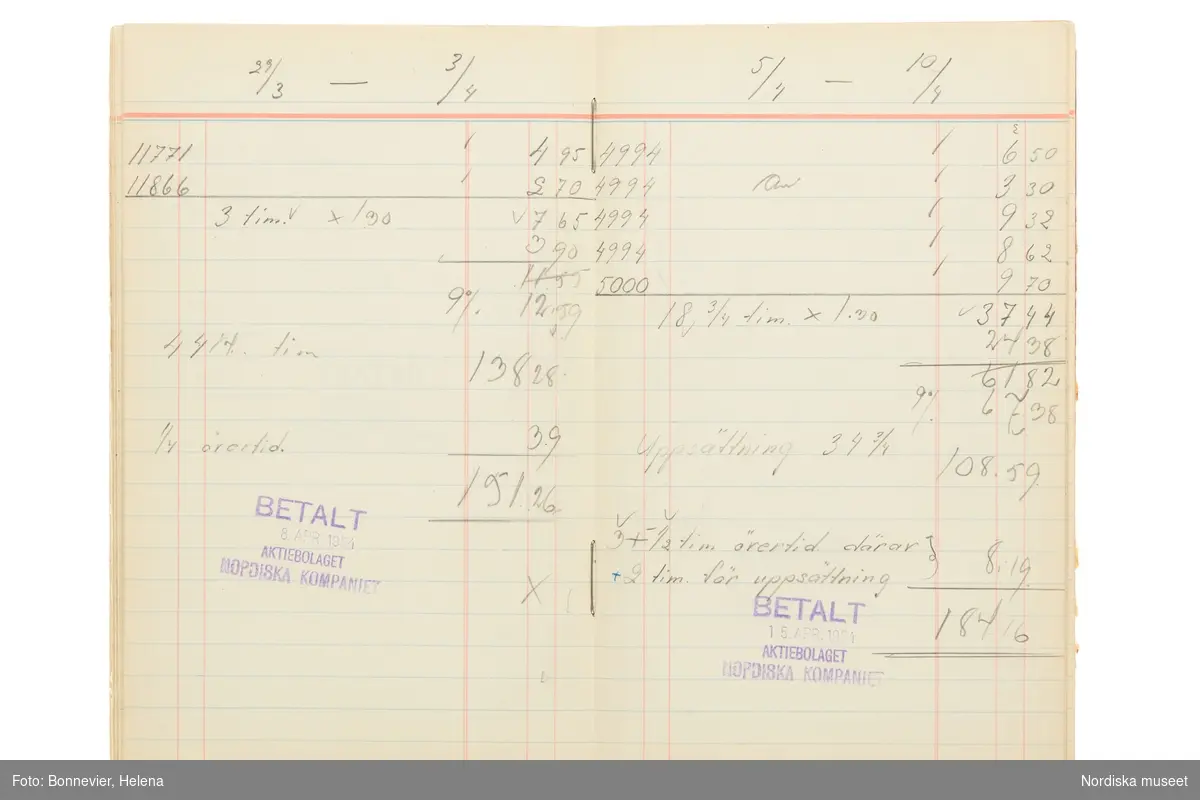 29/3 — 3/4
11771 1 4 95
11866 1 2 70
3 tim. x 1.30 7 65
3 90
11.55
9% 12.59
44 1/4. tim 138 28.
1/4 övertid. 39
151.26
BETALT
8. APR 1951
AKTIEBOLAGET
NORDISKA KOMPANIET
X
5/4 — 10/4
4994 1 6 50
4994 1 3 30
4994 1 9 32
4994 1 8 62
5000 1 9 70
18, 3/4 tim. x 1.30 37 44
24 38
61 82
9% 67 38
Uppsättning 34 3/4 108.59.
3 + 1/2 tim övertid därav } 8.19.
+ 2 tim. för uppsättning
184 16
BETALT
15. APR. 1951
AKTIEBOLAGET
NORDISKA KOMPANIET
Foto: Bonnevier, Helena
Nordiska museet